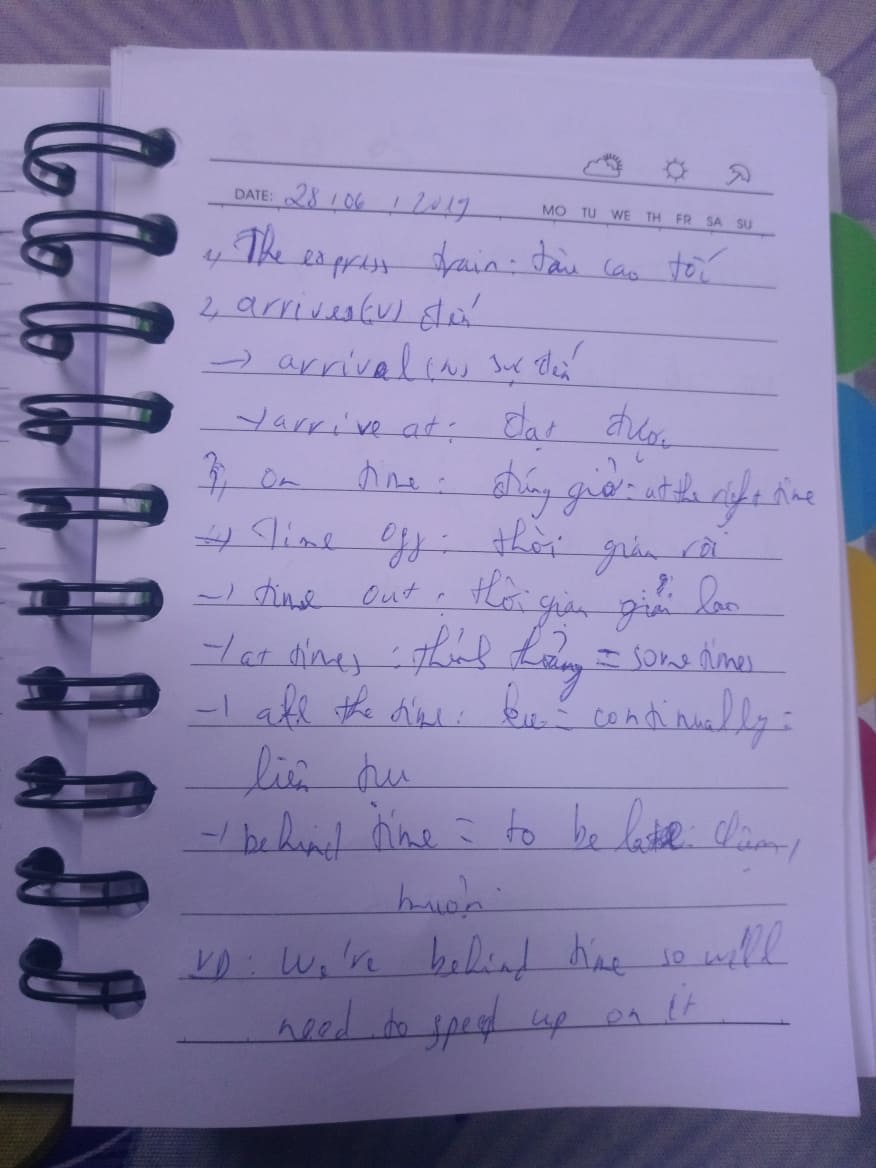 DATE: 28 / 06 / 2019 MO TU WE TH FR SA SU
1, The express train: tàu cao tốc
2, arrives(v) đến
-> arrival (n) sự đến
-> arrive at: đạt được
3, on time: đúng giờ = at the right time
=> Time off: thời gian rỗi
-> time out: thời gian giải lao
-> at times: thỉnh thoảng = sometimes
-> all the time: = continually =
liên tu
-> behind time = to be late: chậm,
muộn
VD: We're behind time so we'll
need to speed up on it